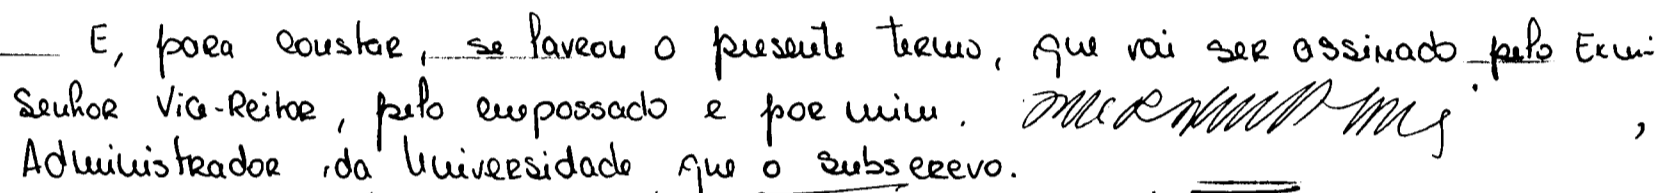 E, para constar, se lavrou o presente termo, que vai ser assinado pelo Exmº
Senhor Vice-Reitor, pelo empossado e por mim.
Administrador da Universidade que o subscrevo.